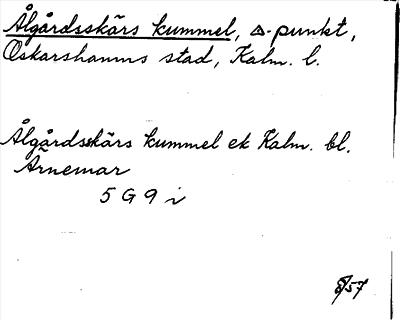 Ålgårdsskärs kummel, △-punkt,
Oskarshamns stad, Kalm. l.
Ålgårdsskärs kummel ek Kalm. bl.
Arnemar
5 G 9 i
8/57